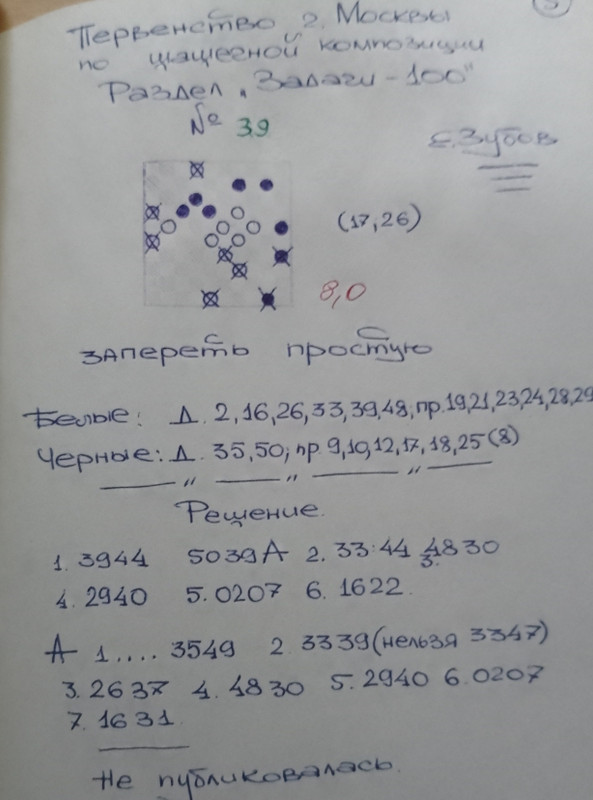 Первенство г. Москвы
по шашечной композиции
Раздел „Задачи-100"
№ 39
Е.Зубов
(17,26)
8,0
запереть простую
Белые: Д. 2,16,26,33,39,48; пр.19,21,23,24,28,29
Черные: Д. 35,50; пр. 9,10,12,17,18,25(8)
Решение.
1. 3944 5039A 2. 33:44 3. 4830
4. 2940 5. 0207 6. 1622.
A 1.... 3549 2. 3339(нельзя 3347)
3. 2637 4. 4830 5. 2940 6. 0207
7. 1631.
Не публиковалась.